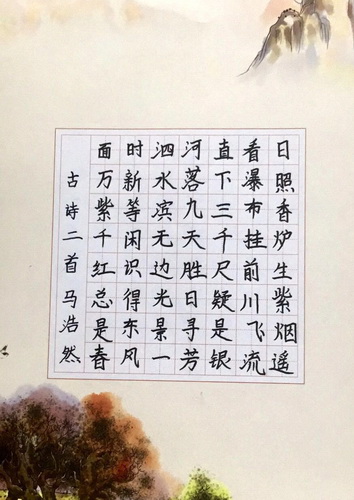 日照香炉生紫烟遥
看瀑布挂前川飞流
直下三千尺疑是银
河落九天胜日寻芳
泗水滨无边光景一
时新等闲识得东风
面万紫千红总是春
古诗二首马浩然